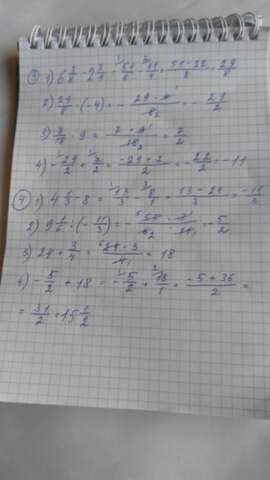 ③ 1) 6 3/8 - 2 3/4 = ¹51/8 - ²11/4 = 51 - 22/8 = 29/8
2) 29/8 · (-4) = - 29 · 4¹/8₂ = - 29/2
3) 7/18 · 9 = 7 · 9¹/18₂ = 7/2
4) - 29/2 + 7/2 = -29 + 7/2 = - 22/2 = -11
④ 1) 4 1/3 - 8 = ¹13/3 - ³8/1 = 13 - 24/3 = -11/3
2) 9 1/6 : (- 11/3) = - ⁵55 · 3¹/6₂ · 11₁ = - 5/2
3) 24 · 3/4 = ⁶24 · 3/4₁ = 18
4) - 5/2 + 18 = - ¹5/2 + ²18/1 = -5 + 36/2 =
= 31/2 = 15 1/2